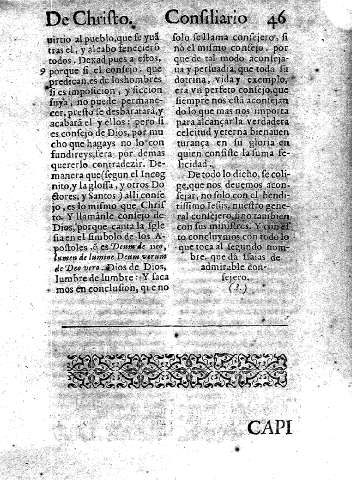 De Christo. Consiliario 46
uirtio al pueblo, que se yuā
tras el, y al cabo fenecierō
todos. Dexad pues a estos,
porque si el consejo que
predican, es de los hombres
si es imposicion, y ficcion
suya, no puede permane-
cer, presto se desbaratarà, y
acabarà el y ellos: pero si
es consejo de Dios, por mu
cho que hagays no lo con
fundireys, sera por demas
quererlo contradezir. De
manera que (segun el Incog
nito, y la glossa, y otros Do
ctores, y Santos) alli conse
jo, es lo mismo que Chris
to. Y llamanle consejo de
Dios, porque canta la Igle
sia en el simbolo de los A-
postoles. q̄ es Deum de Deo,
lumen de lumine Deum verum
de Deo vero. Dios de Dios,
lumbre de lumbre: Y saca
mos en conclusion, que no
solo se llama consejero, si
no el mismo consejo, por
que de tal modo aconseja-
ua y persuadia, que toda su
dotrina, vida y exemplo,
era vn perfeto consejo, que
siempre nos està aconsejan
do lo que mas nos importa
para alcançar la verdadera
celsitud y eterna bienauen
turança en su gloria en
quien consiste la suma fe-
licidad.
De todo lo dicho, se coli-
ge, que nos deuemos acon-
sejar, no solo con el bendi-
tissimo Iesus, nuestro gene-
ral consejero, sino tambien
con sus ministros. Y con es
to concluymos con todo lo
que toca al segundo nom-
bre, que dà Isaias de
admirable con-
sejero.
(?.)
CAPI